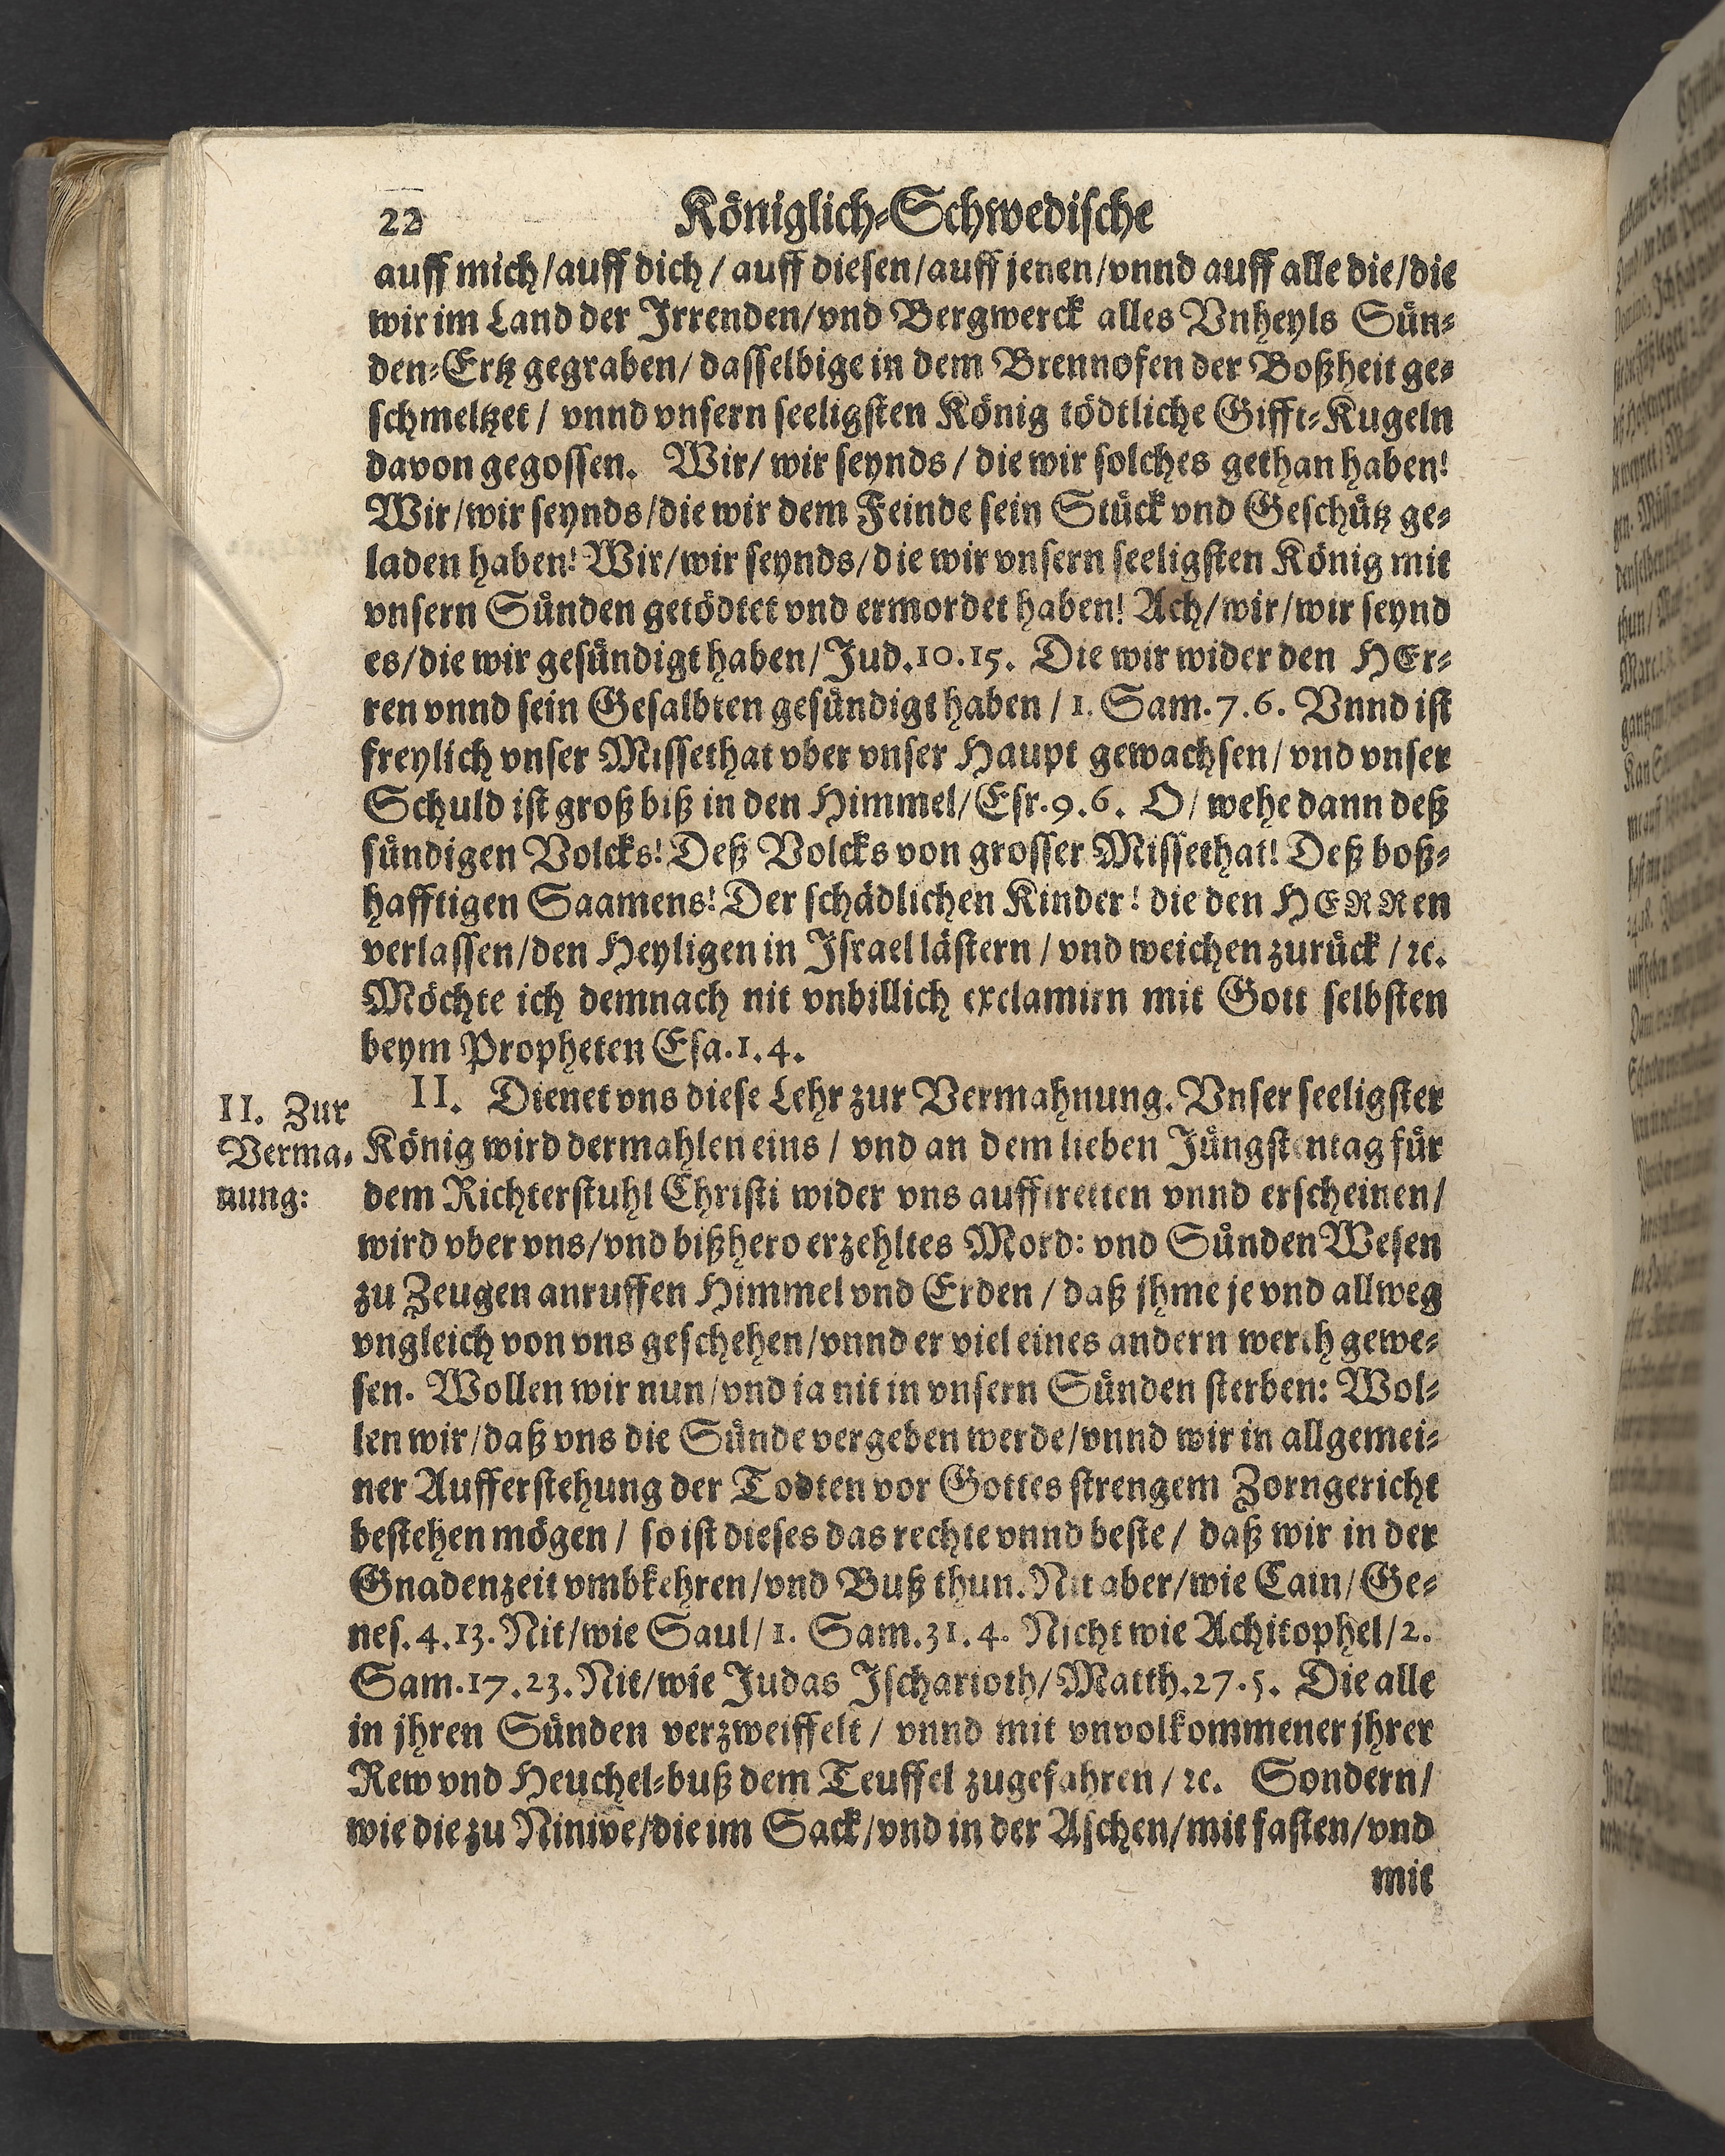 22 Königlich-Schwedische
auff mich/auff dich/ auff diesen/auff jenen/vnnd auff alle die/die
wir im Land der Irrenden/vnd Bergwerck alles Vnheyls Sün-
den-Ertz gegraben/ dasselbige in dem Brennofen der Boßheit ge-
schmeltzet/ vnnd vnsern seeligsten König tödtliche Gifft-Kugeln
davon gegossen. Wir/ wir seynds/ die wir solches gethan haben!
Wir/wir seynds/die wir dem Feinde sein Stück vnd Geschütz ge-
laden haben! Wir/wir seynds/die wir vnsern seeligsten König mit
vnsern Sünden getödtet vnd ermordet haben! Ach/wir/wir seynd
es/die wir gesündigt haben/Jud.10.15. Die wir wider den HEr-
ren vnnd sein Gesalbten gesündigt haben/ 1. Sam.7.6. Vnnd ist
freylich vnser Missethat vber vnser Haupt gewachsen/ vnd vnser
Schuld ist groß biß in den Himmel/Esr.9.6. O/ wehe dann deß
sündigen Volcks! Deß Volcks von grosser Missethat! Deß boß-
hafftigen Saamens! Der schädlichen Kinder! die den HERRen
verlassen/den Heyligen in Israel lästern/ vnd weichen zurück/ ꝛc.
Möchte ich demnach nit vnbillich exclamirn mit Gott selbsten
beym Propheten Esa.1.4.
II. Dienet vns diese Lehr zur Vermahnung. Vnser seeligster
König wird dermahlen eins/ vnd an dem lieben Jüngstentag für
dem Richterstuhl Christi wider vns aufftretten vnnd erscheinen/
wird vber vns/vnd bißhero erzehltes Mord: vnd Sünden Wesen
zu Zeugen anruffen Himmel vnd Erden/ daß jhme je vnd allweg
vngleich von vns geschehen/vnnd er viel eines andern werth gewe-
sen. Wollen wir nun/vnd ja nit in vnsern Sünden sterben: Wol-
len wir/daß vns die Sünde vergeben werde/vnnd wir in allgemei-
ner Aufferstehung der Todten vor Gottes strengem Zorngericht
bestehen mögen/ so ist dieses das rechte vnnd beste/ daß wir in der
Gnadenzeit vmbkehren/vnd Buß thun. Nit aber/wie Cain/Ge-
nes.4.13. Nit/wie Saul/1. Sam.31.4. Nicht wie Achitophel/2.
Sam.17.23. Nit/wie Judas Ischarioth/Matth.27.5. Die alle
in jhren Sünden verzweiffelt/ vnnd mit vnvolkommener jhrer
Rew vnd Heuchel-buß dem Teuffel zugefahren/ ꝛc. Sondern/
wie die zu Ninive/die im Sack/vnd in der Aschen/mit fasten/vnd
mit
II. Zur
Verma-
nung: